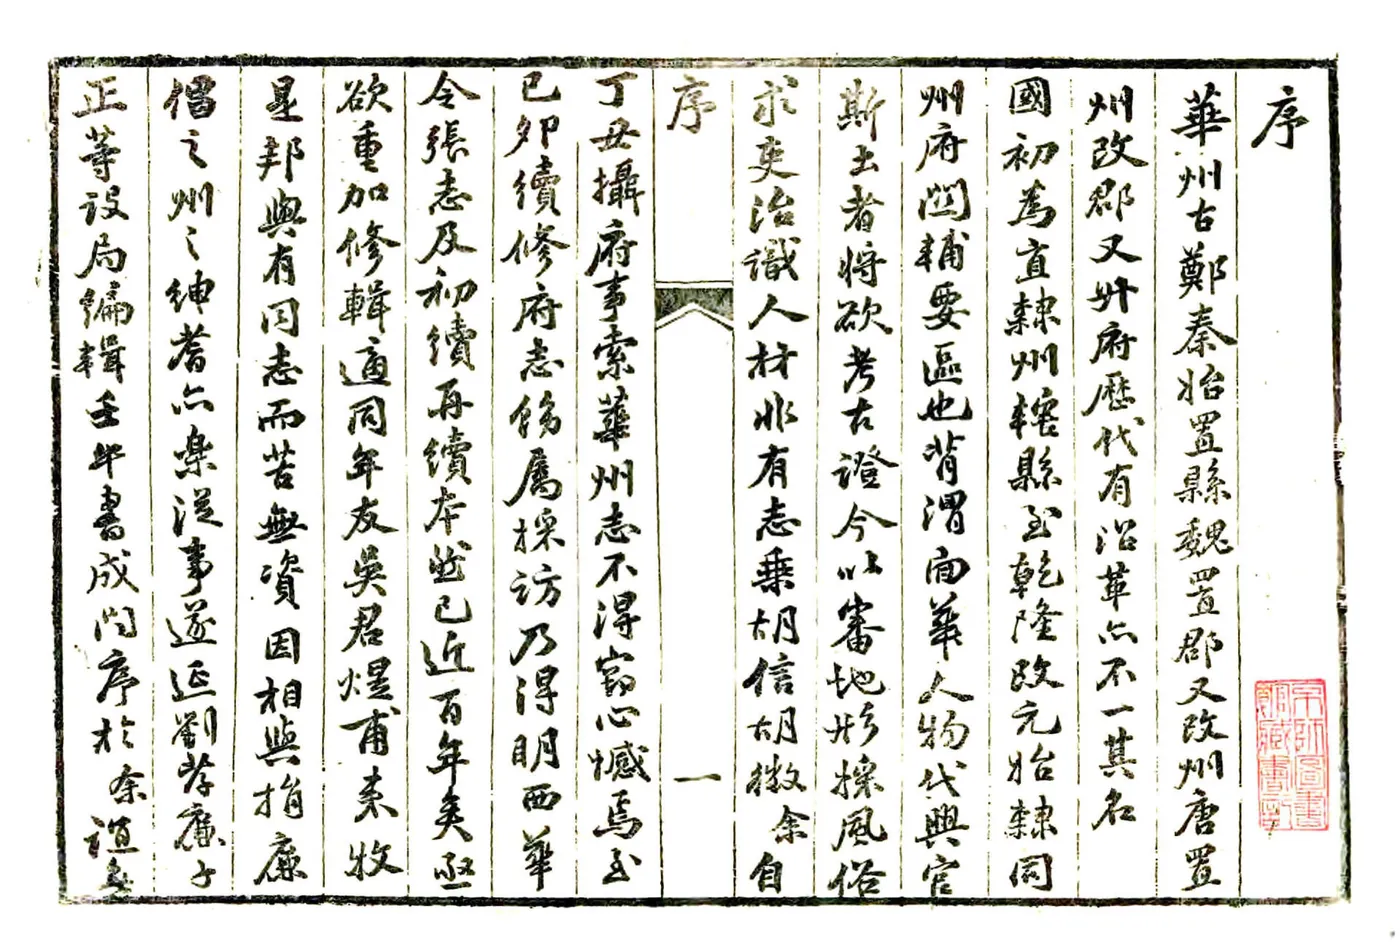 序
華州古鄭秦始置縣魏置郡又改州唐置
州改郡又升府歷代有沿革亦不一其名
國初為直隸州轄縣至乾隆改元始隸同
州府關輔要區也背渭面華人物代興官
斯土者將欲考古證今以審地形採風俗
求吏治識人材非有志乗胡信胡徵余自
序
一
丁丑攝府事索華州志不得竊心憾焉至
已卯續修府志飭屬採訪乃得明西華
令張志及初續再續本然已近百年矣亟
欲重加修輯適同年友吳君煜甫來牧
是邦與有同志而苦無資因相與捐廉
倡之州之紳耆亦樂從事遂延劉孝廉子
正等設局編輯壬午書成問序於余誼無
京師圖書館藏書印